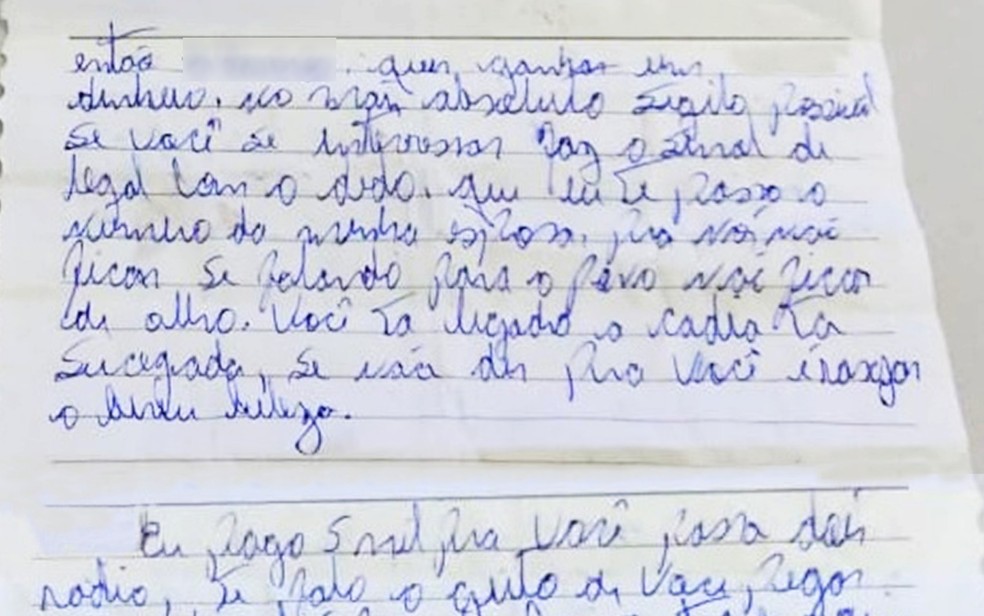 então quer ganhar um
dinheiro. no mais absoluto sigilo possivel
se você se interessar faz o sinal de
legal com o dedo. que eu te passo o
numero da minha esposa, pra nós não
ficar se falando para o povo não ficar
de olho. você ta ligado a cadia ta
sucegada, se não der pra você
o beleza.
Eu pago 5 mil pra você passa dois
radio, te falo o geito di voce pegar